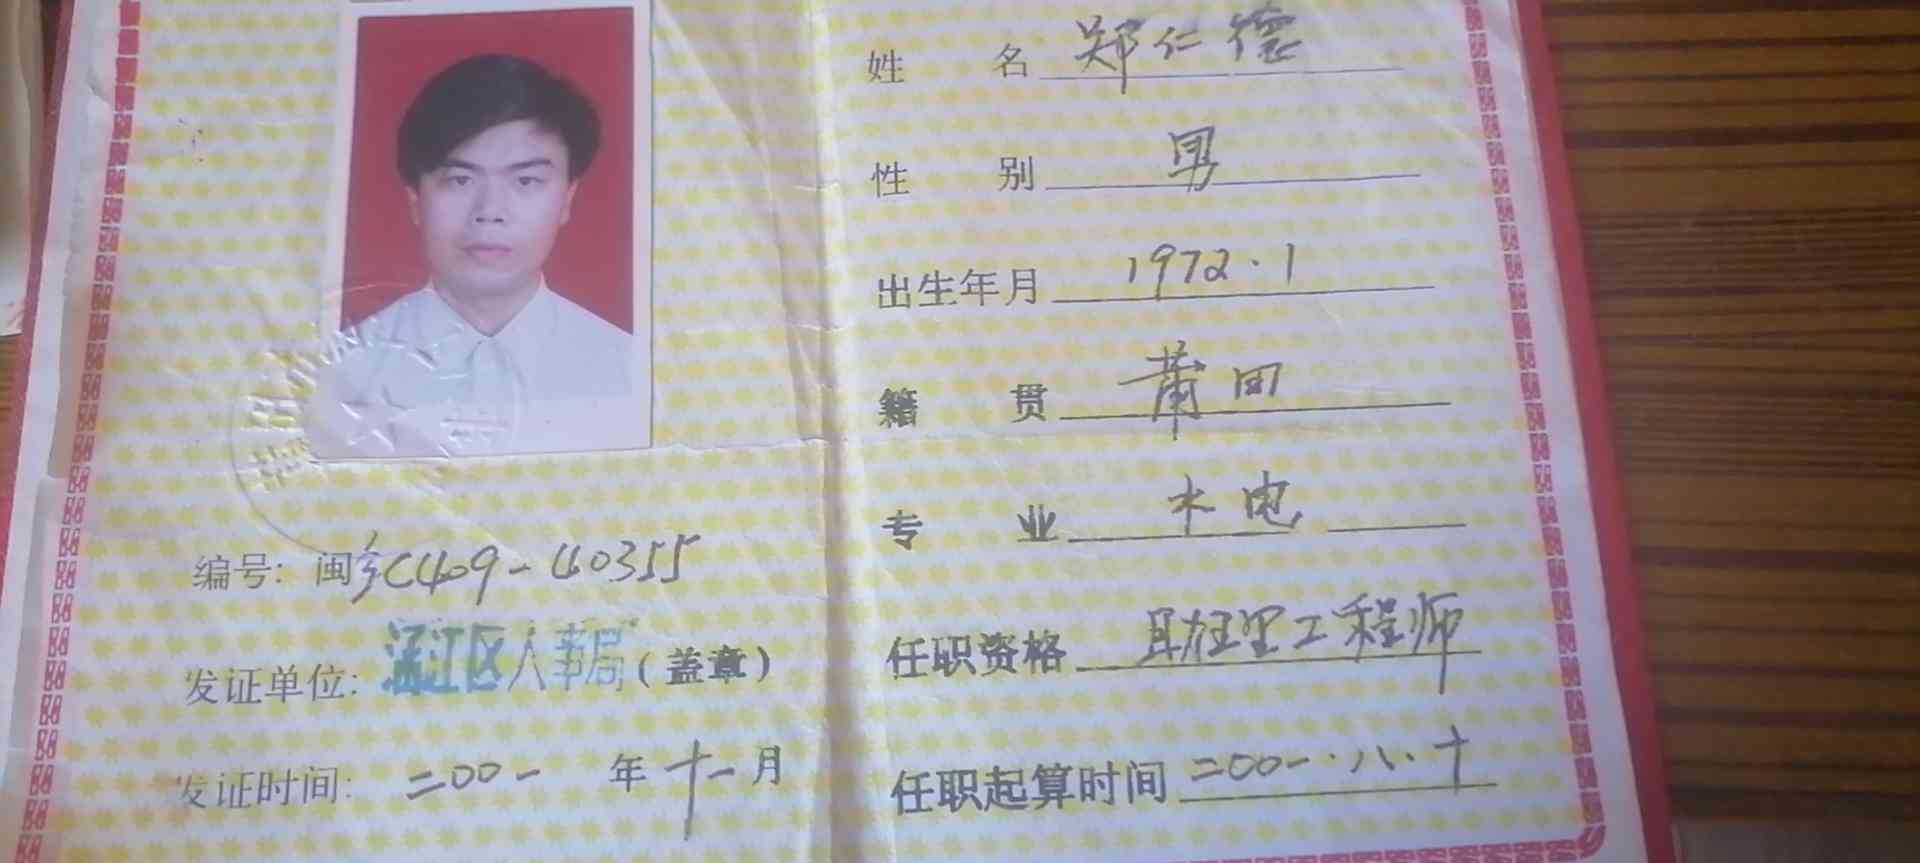 编号: 闽 C409-40355
发证单位: 涵江区人事局 (盖章)
发证时间: 二00一 年 十一 月
姓 名 郑仁德
性 别 男
出生年月 1972.1
籍 贯 莆田
专 业 水电
任职资格 助理工程师
任职起算时间 二00一.八.十